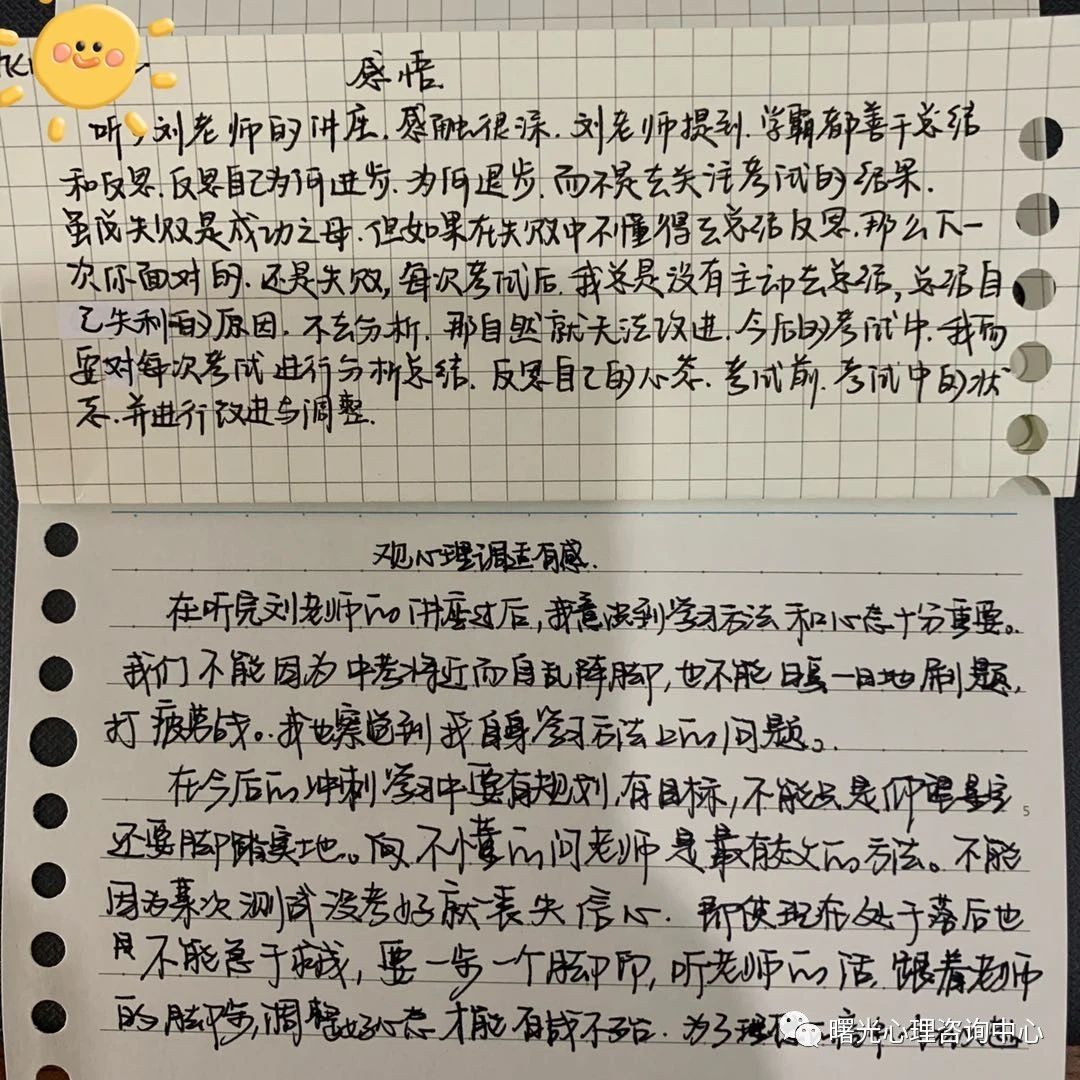 感悟
听了刘老师的讲座.感触很深.刘老师提到.学霸都善于总结
和反思.反思自己为何进步.为何退步.而不是去关注考试的结果.
虽说失败是成功之母.但如果在失败中不懂得去总结反思.那么下一
次你面对的.还是失败,每次考试后.我总是没有主动去总结,总结自
己失利的原因.不去分析.那自然就无法改进.今后的考试中.我而
要对每次考试进行分析总结.反思自己的心态.考试前.考试中的状
态.并进行改进与调整.
观心理调适有感.
在听完刘老师的讲座过后,我意识到学习方法和心态十分重要。
我们不能因为中考将近而自乱阵脚,也不能日复一日地刷题,
打疲劳战。我也察觉到我自身学习方法上的问题。
在今后的冲刺学习中要有规划,有目标,不能只是仰望星空
还要脚踏实地。向不懂的问老师是最有效的方法。不能
因为某次测试没考好就丧失信心.即使现在处于落后也
不能急于求成,要一步一个脚印,听老师的话.跟着老师
的脚步,调整好心态才能百战不殆.为了理
曙光心理咨询中心